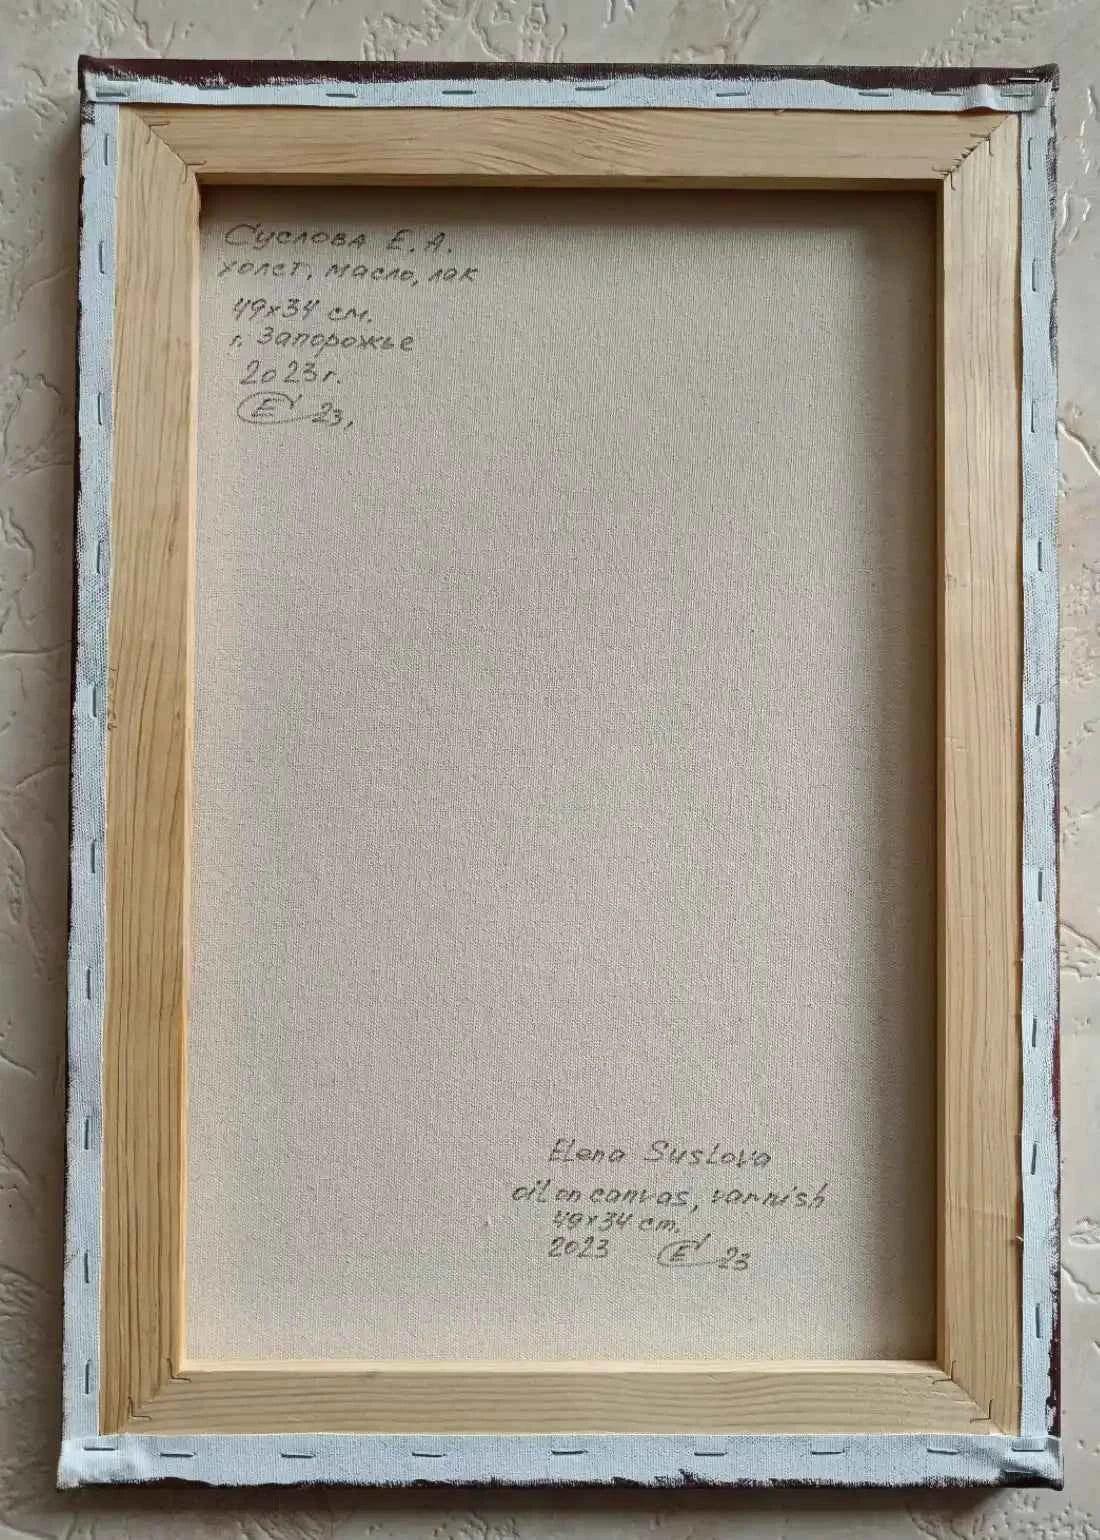 Суслова Е. А.
холст, масло, лак
49х34 см.
г. Запорожье
2023г.
E 23,
Elena Suslova
oil on canvas, varnish
49x34 cm.
2023 E 23